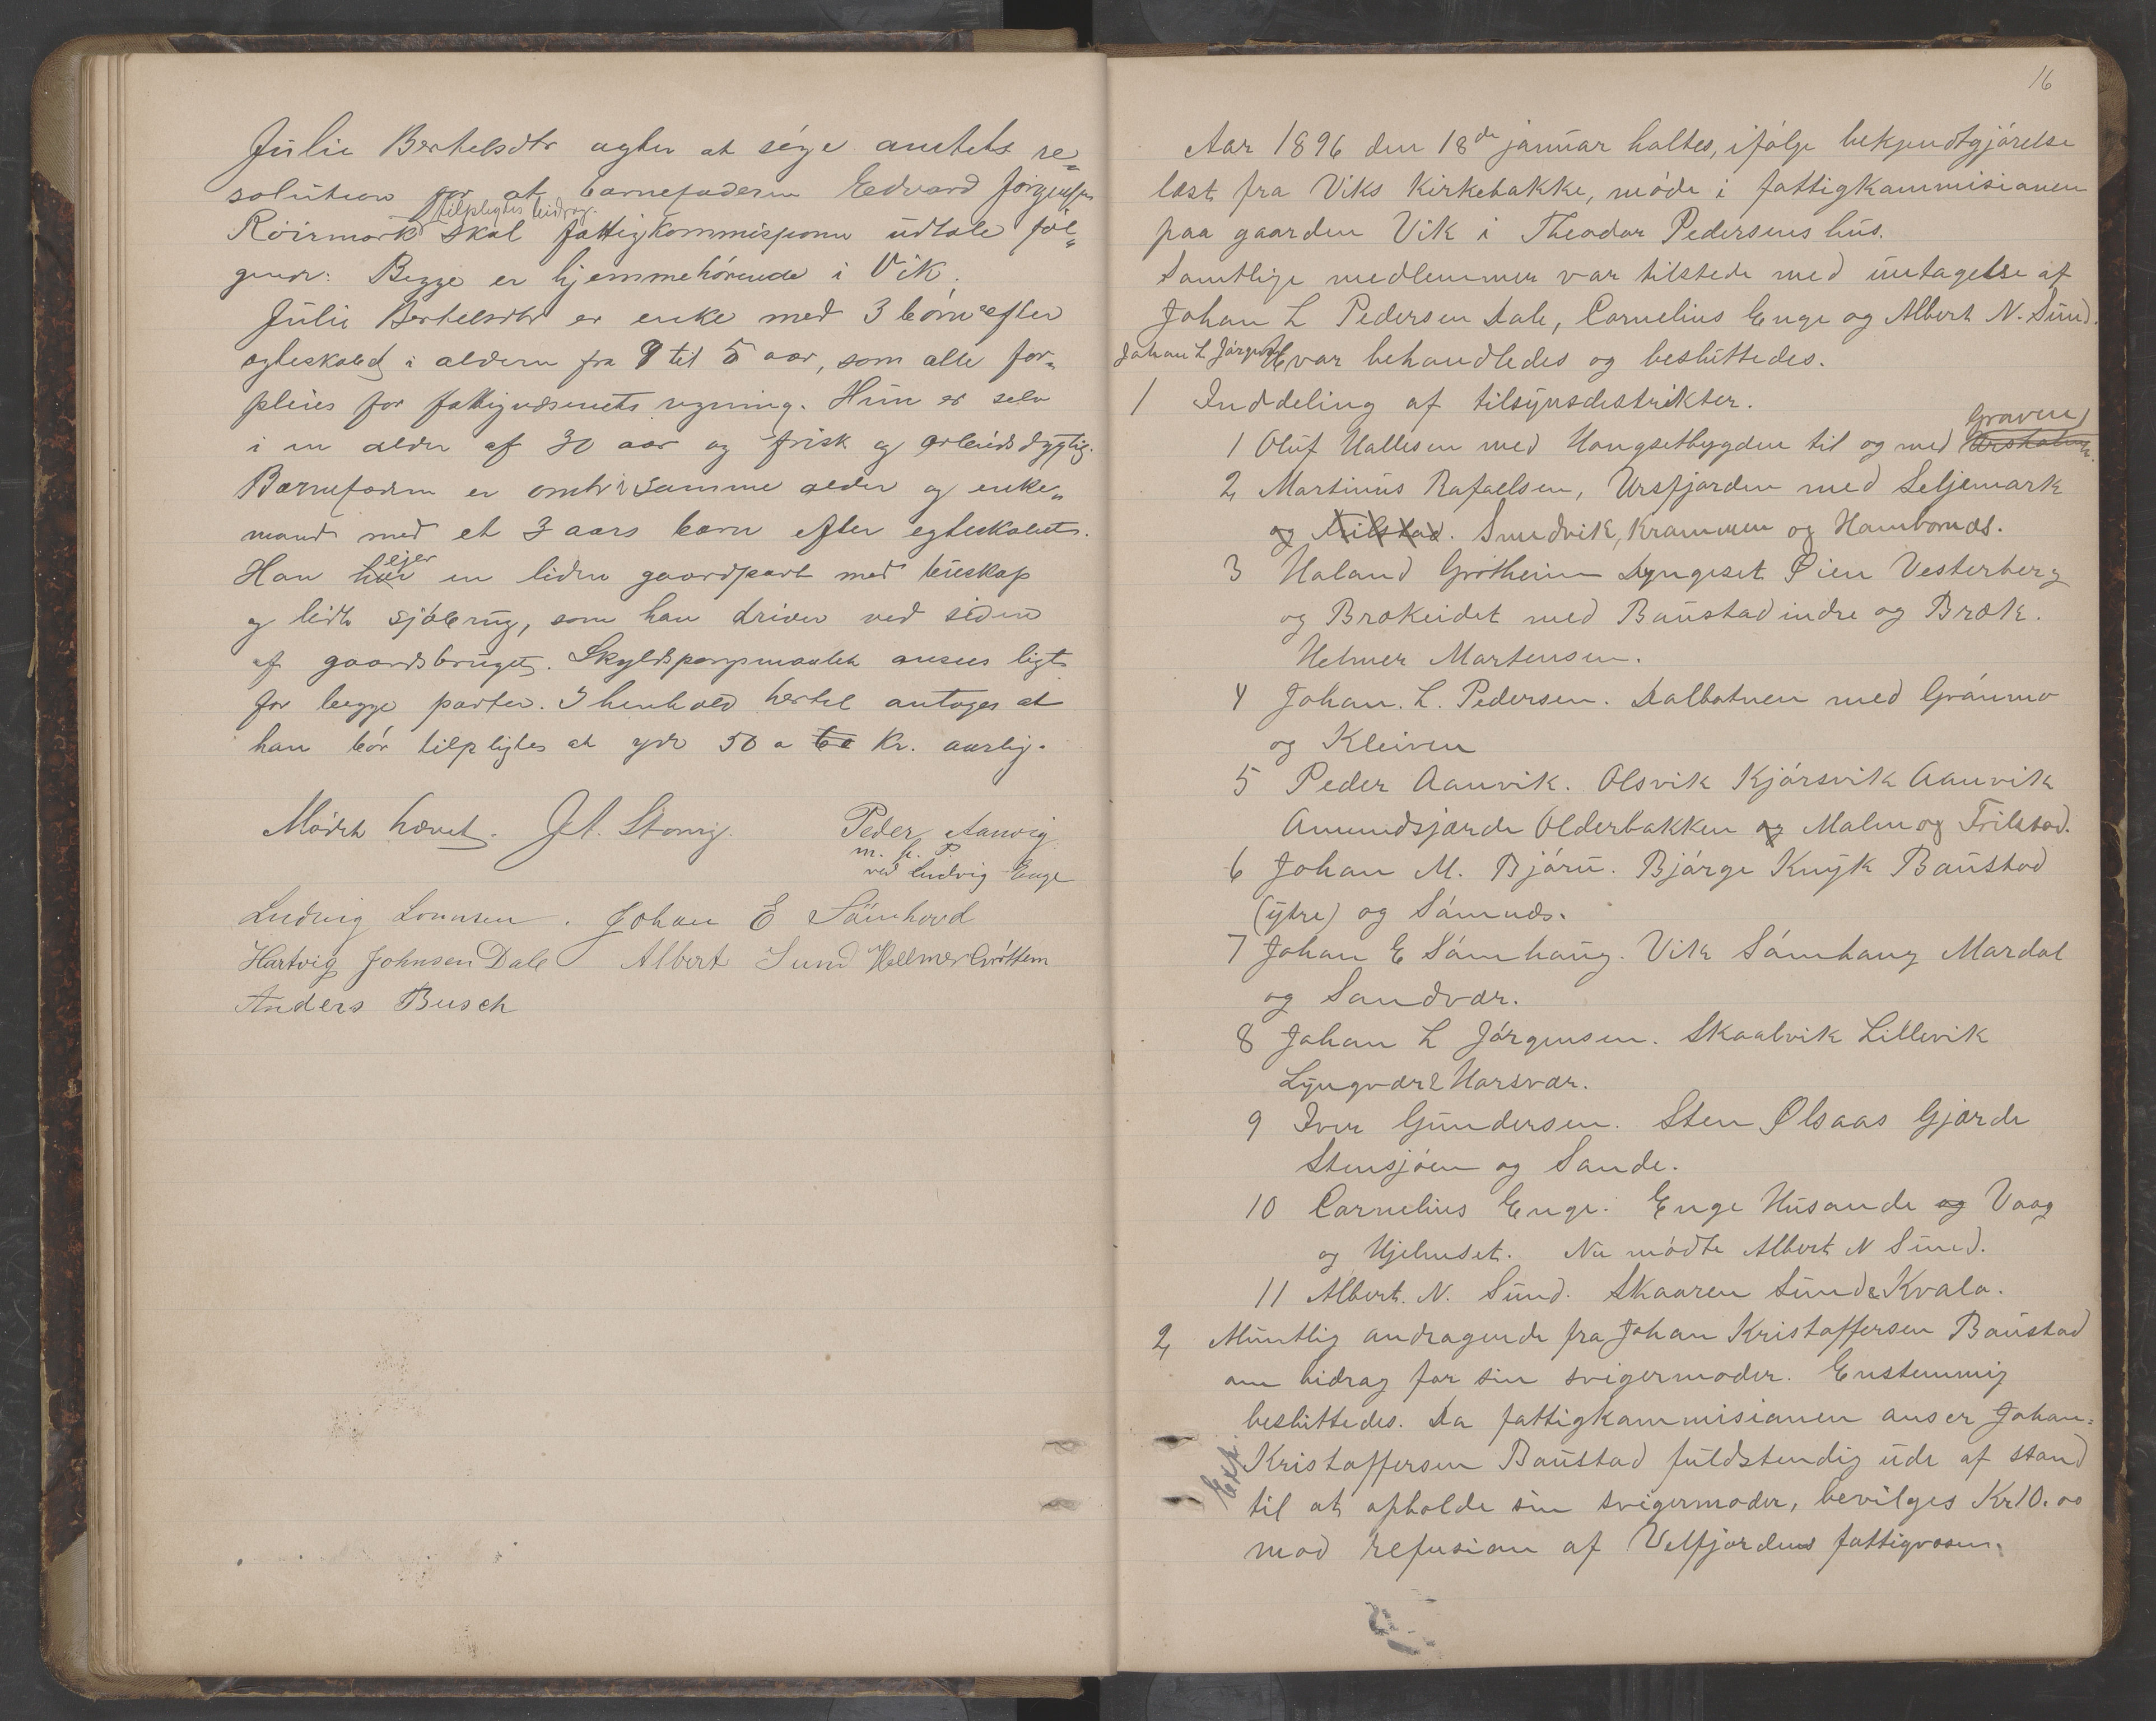 Julie Bertelsdtr agter at søge amtets re„
solution for at barnefaderen Edvard Jørgensen
tilpligtes bidrag.
Röirmark skal fattigkommissjonen udtale føl„
gende: Begge er hjemmehørende i Vik.
Julie Bertelsdtr er enke med 3 børn efter
egteskabet i alderen fra 9 til 5 aar, som alle for„
pleies for fattigvæsenets regning. Hun er selv
i en alder af 30 aar og frisk og arbeidsdygtig.
Barnefaderen er omtr i samme alder og enke„
mand med et 3 aars barn efter egteskabet.
ejer
Han har en liden gaardpart med buskap
og lidt sjøbrug, som han driver ved siden
af gaardsbruget. Skyldspørgsmaalet ansees ligt
for begge parter. I henhold hertil antages at
han bør tilpligtes at yde 50 a 60 Kr. aarlig.
Mødet hævet. Peder Aanvig
m. h. P.
ved Ludvig Enge
Ludvig Lornsen. Johan E Sömhovd
Hartvig Johnsen Dale Albert Sund Helmer Gröttem
Anders Busch
16
Aar 1896 den 18de januar holtes, ifølge bekjendtgjørelse
læst fra Viks Kirkebakke, møde i fattigkommisionen
paa gaarden Vik i Theodor Pedersens hus.
Samtlige medlemmer var tilstede med untagelse af
Johan L Pedersen Dale, Cornelius Enge og Albert N. Sund.
Johan L Jørgens Hvor behandledes og besluttedes.
1 Inddeling af tilsynsdestrikter.
Graven
1 Oluf Hallesen med Hongsetbygden til og med
2 Martinus Rafaelsen, Ursfjorden med Seljemark
og Trilstad. Smedvik, Krammen og Hambornæs.
3 Haland Grötheim Lyngset Øien Vesterberg
og Brækeidet med Baustad indre og Bræk.
Helmer Martensen.
4 Johan. L. Pedersen. Dalbotnen med Grönmo
og Kleiven
5 Peder Aanvik. Olsvik Kjörsvik Aanvik
Amundsjærde Olderbakken og Malm og Trilstad.
6 Johan M. Björu. Bjørge Knyk Baustad
(ytre) og Sömnæs.
7 Johan E Sömhaug. Vik Sömhaug Mardal
og Sandvær.
8 Johan L Jörgensen. Skaalvik Lillevik
Lyngvær & Horsvær.
9 Iver Gundersen. Sten Ølsaas Gjærde
Stensjöen og Sande.
10 Cornelius Enge. Enge Husande og Vaag
og Hjelmset. Nu mødte Albert N Sund.
11 Albert. N. Sund. Skaaren Sund & Kvala.
2 Muntlig andragende fra Johan Kristoffersen Baustad
om bidrag for sin svigermoder. Enstemmig
besluttedes. Da fattigkommisionen anser Johan
Exp.
Kristoffersen Baustad fuldstendig ude af stand
til at opholde sin svigermoder, bevilges Kr 10.00
mod refusion af Velfjordens fattigvæsen.